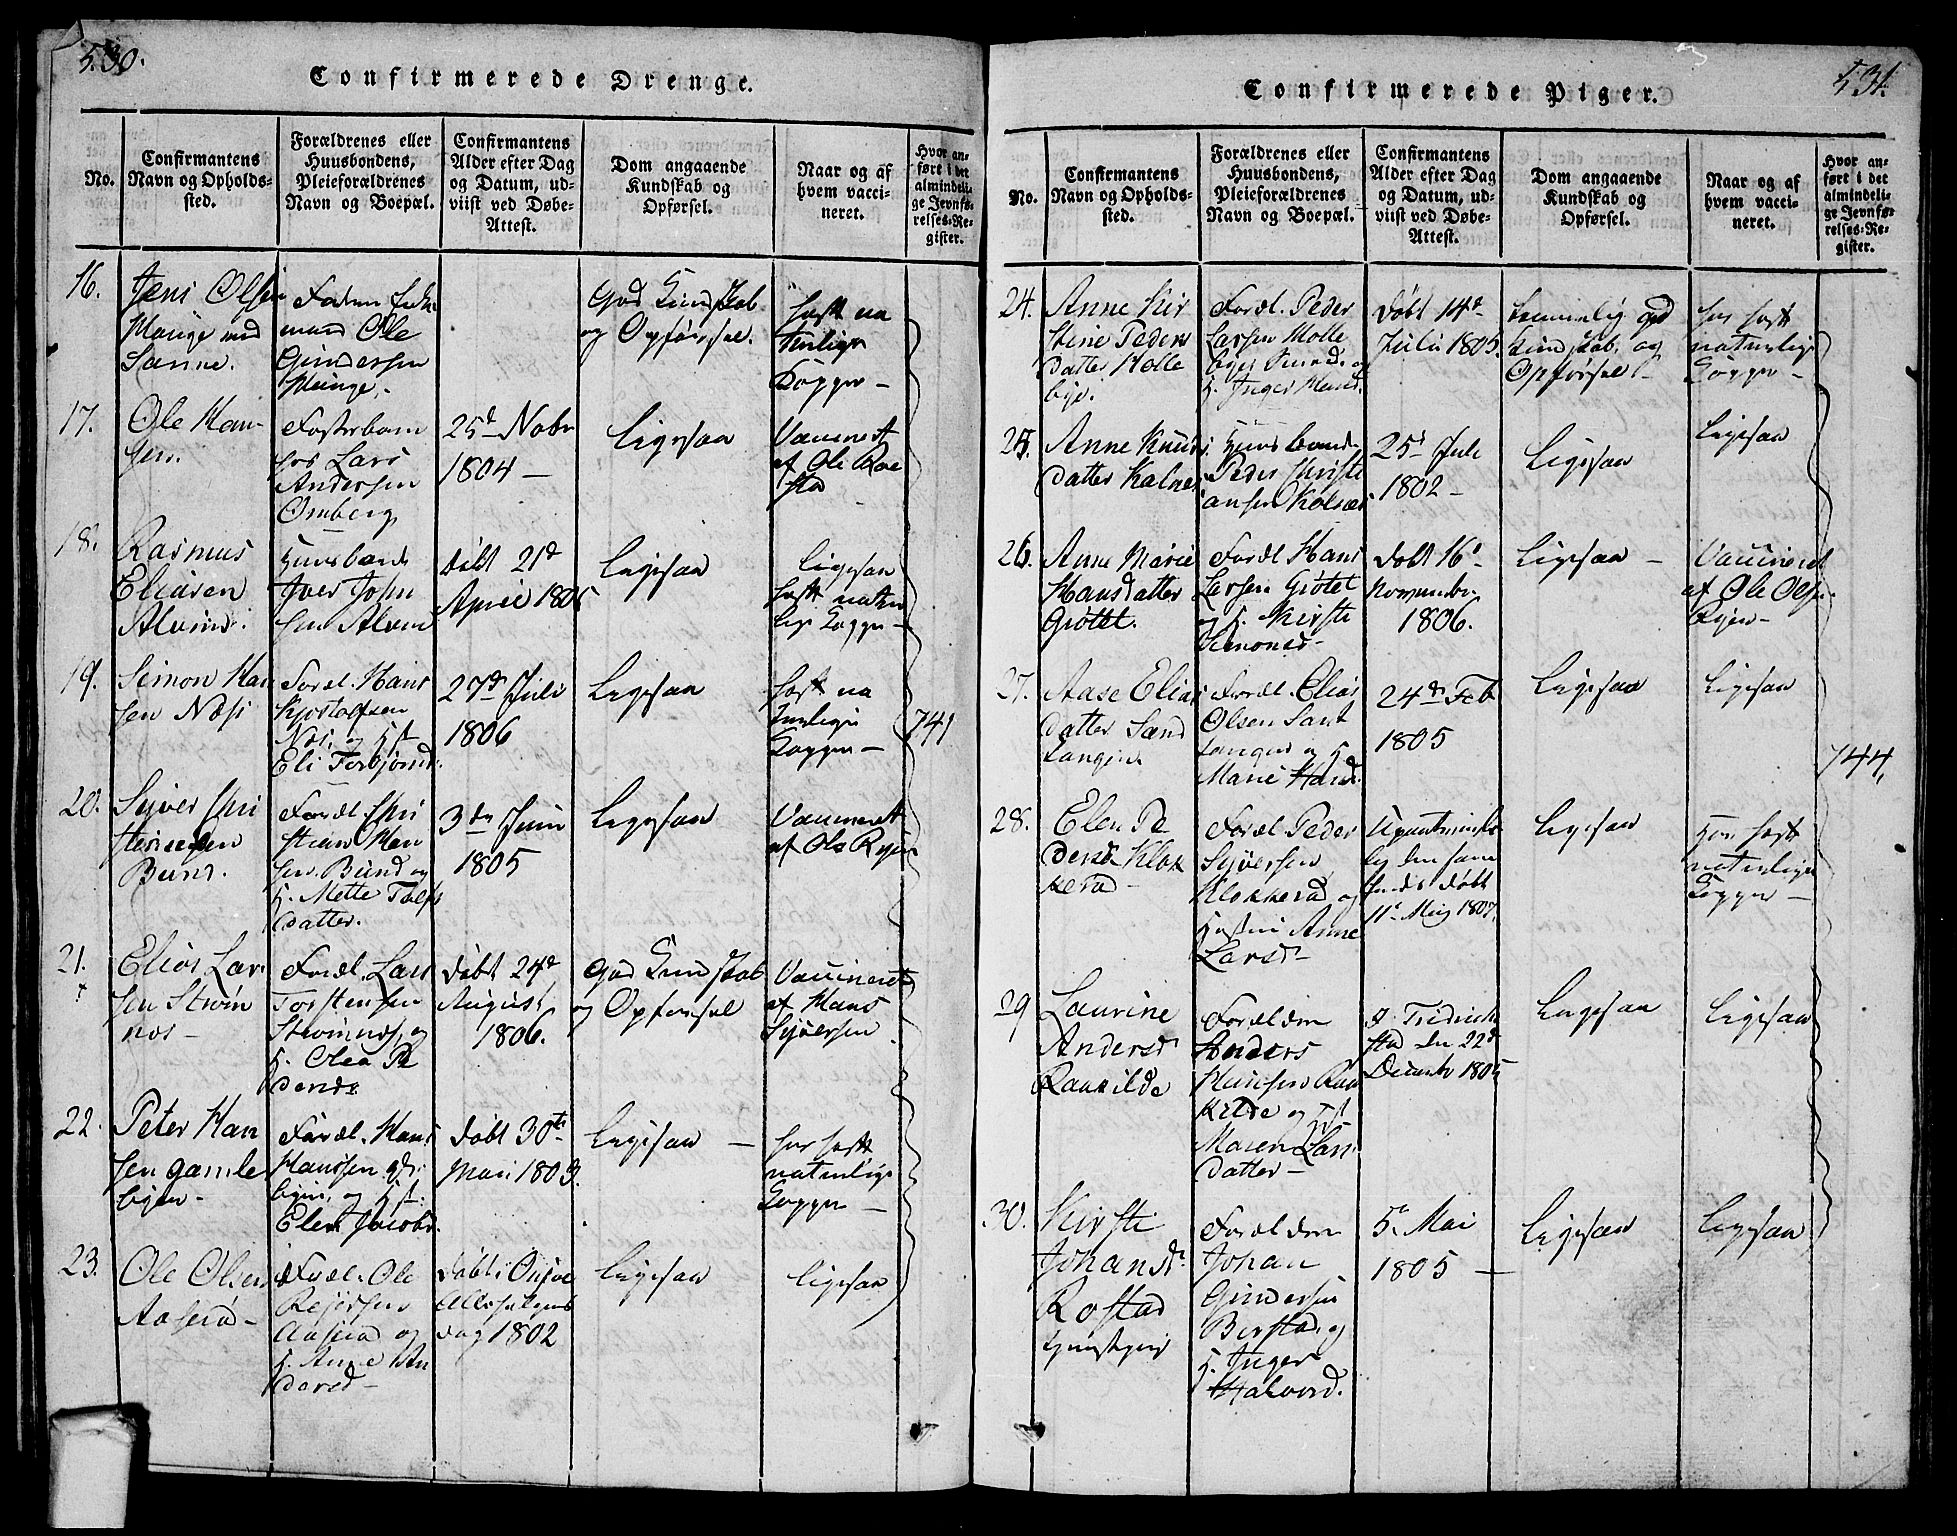 530.
Confirmerede Drenge.
No.
Confirmantens
Navn og Opholds-
sted.
Forældrenes eller
Huusbondens,
Pleieforældrenes
Navn og Boepæl.
Confirmantens
Alder efter Dag
og Datum, ud-
viist ved Døbe-
Attest.
Dom angaaende
Kundskab og
Opførsel.
Naar og af
hvem vacci-
neret.
Hvor an-
ført i det
almindeli-
ge Jevnfø-
relses-Re-
gister.
16.
Jens Olsen
Sanne.
Ole
Gundersen
God Kundskab
og Opførsel.
haft na
turlige
Kopper –
17.
Ole Han-
sen.
Fosterbarn
hos Lars
Andersen
Omberg
25d Nobr
1804 –
Ligesaa
Vaccineret
af Ole Roe
stad
18.
Rasmus
Eliasen
Alvim.
Huusbond
Iver John
sen Alvim
døbt 21d
April 1805
Ligesaa
Ligesaa
haft natur
lige Kopper –
19.
Simon Han
sen Næs
Foræl. Hans
Kjøstolfsen
Næs, og Hst
Eli Torbjørnd.
27de Juli
1806
Ligesaa
haft na
turlige
Kopper –
741
20.
Syver Chri
stiansen
Bund.
Foræl Chri
stian Han
sen Bund og
H. Mette Tolfs
datter.
3de Juni
1805
Ligesaa
Vaccineret
af Ole Ryen
21.
Elias Lar
sen Strøm
nes –
Foræl. Lars
Torstensen
Strømnes, og
H. Olea Pe
dersdr
døbt 24d
August
1806.
God Kundskab
og Opførsel
Vaccineret
af Hans
Syversen
22.
Peter Han
sen gamle
byen –
Foræl. Hans
Hanssen gl.
byen, og Hst.
Elen Jacobs
døbt 30te
Mai 1803.
Ligesaa –
har haft
naturlige
Kopper –
23.
Ole Olsen
Aaserød –
Foræl. Ole
Rejersen
Aaserød og
H. Anne An
dersd –
døbt i Onsøe
Allehelgens
dag 1802
Ligesaa
Ligesaa
531.
Confirmerede Piger.
No.
Confirmantens
Navn og Opholds-
sted.
Forældrenes eller
Huusbondens,
Pleieforældrenes
Navn og Boepæl.
Confirmantens
Alder efter Dag
og Datum, ud-
viist ved Døbe-
Attest.
Dom angaaende
Kundskab og
Opførsel.
Naar og af
hvem vacci-
neret.
Hvor an-
ført i det
almindeli-
ge Jevnfø-
relses-Re-
gister.
24.
Anne Kir
stine Peders
datter Holle
bye.
Foræl. Peder
Larsen Holle
bye
H. Inger Hansd.
døbt 14d
Juli 1805.
temmelig god
Kundskab og
Opførsel –
har haft
naturlige
Kopper –
25.
Anne Knuds
datter Kalnes
Huusbond
Peder Christi
ansen Kolnes
25d Juli
1802 –
Ligesaa
Ligesaa
26.
Anne Marie
Hansdatter
Grøtet.
Foræl Hans
Larsen Grøtet
og H. Kirsti
Simonsd –
døbt 16d
November
1806.
Ligesaa –
Vaccineret
af Ole Olsen
Ryen –
27.
Aase Elias
datter Sand
tangen
Foræl. Elias
Olsen Sand
tangen og H.
Marie Hansd.
24de Feb
1805
Ligesaa
Ligesaa
744.
28.
Elen Pe
dersd Klok
kerød –
Foræl Peder
Syversen
Klokkerød og
Hustru Anne
Larsdr
døbt
11t Maj 1807
Ligesaa
har haft
naturlige
Kopper –
29
Laurine
Andersd
Raakilde
Forældrene
Anders
Hansen Raa
kilde og Hst
Maren Lars
datter –
i Fredrich
stad den 22d
December 1805
Ligesaa
Ligesaa
30.
Kirsti
Johansdr
Rostad
Forældrene
Johan
Gundersen
Berstad, og
H. Inger
Halvord.
5t Mai
1805 –
Ligesaa
Ligesaa